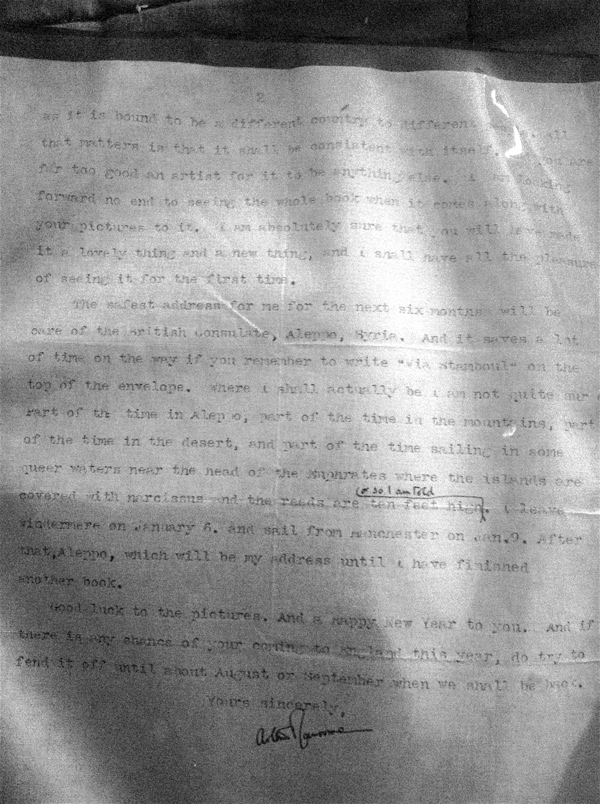 2
as it is bound to be a different country to different. All
that matters is that it shall be consistent with itself. You are
far too good an artist for it to be anything else. I am looking
forward no end to seeing the whole book when it comes along with
your pictures to it. I am absolutely sure that you will have made
it a lovely thing and a new thing, and I shall have all the pleasure
of seeing it for the first time.
The safest address for me for the next six months will be
care of the British Consulate, Aleppo, Syria. And it saves a lot
of time on the way if you remember to write "Via Stamboul" on the
top of the envelope. Where I shall actually be I am not quite sur
Part of the time in Aleppo, part of the time in the mountains, part
of the time in the desert, and part of the time sailing in some
queer waters near the head of the Euphrates where the islands are
(or so I am told
covered with narcissus and the reeds are ten feet high. I leave
Windermere on January 6. and sail from Manchester on Jan.9. After
that,Aleppo, which will be my address until I have finished
another book.
Good luck to the pictures. And a Happy New Year to you. And if
there is any chance of your coming to England this year, do try to
fend it off until about August or September when we shall be back.
Yours sincerely,